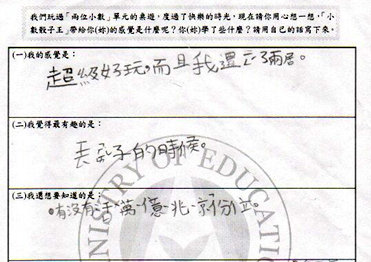 我們玩過「兩位小數」單元的桌遊，度過了快樂的時光，現在請你用心想一想，「小
數骰子王」帶給你(妳)的感覺是什麼呢？你(妳)學了些什麼？請用自己的話寫下來。
(一)我的感覺是：
超級好玩。而且我還玩了兩局。
(二)我覺得最有趣的是：
丟骰子的時候。
(三)我還想要知道的是：
有沒有 萬、億、兆、京分位。
MINISTRY OF EDUCATION